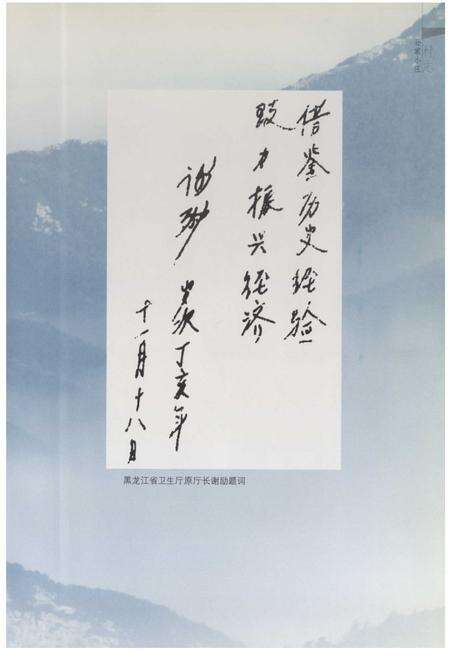 借鉴历史经验
致力振兴经济
谢励
岁次丁亥年
十一月十八日
黑龙江省卫生厅原厅长谢励题词